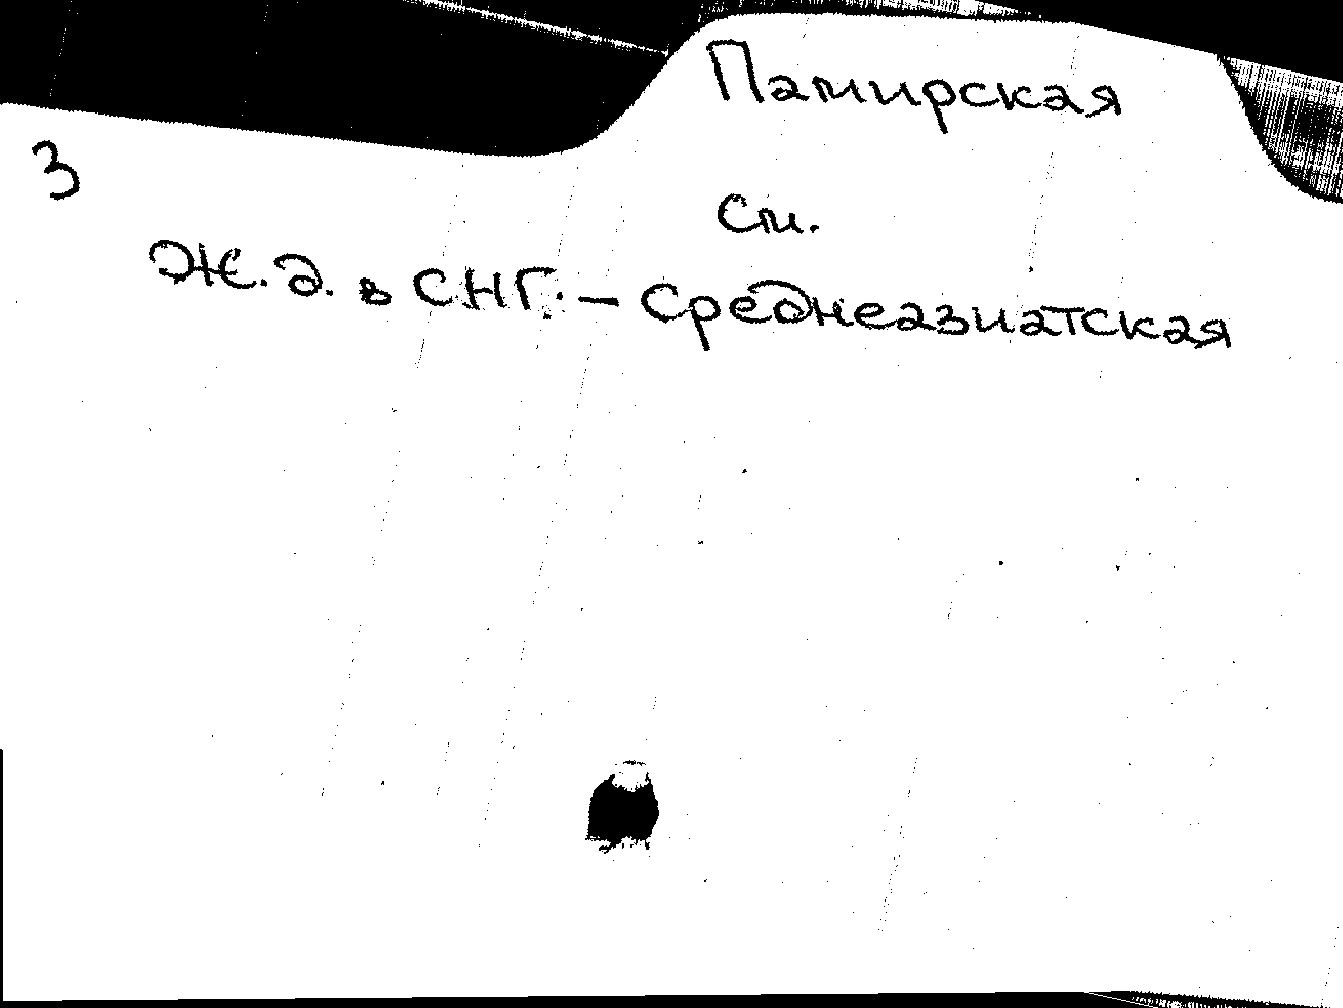 Памирская
3
См.
Ж.д. в СНГ. – Среднеазиатская